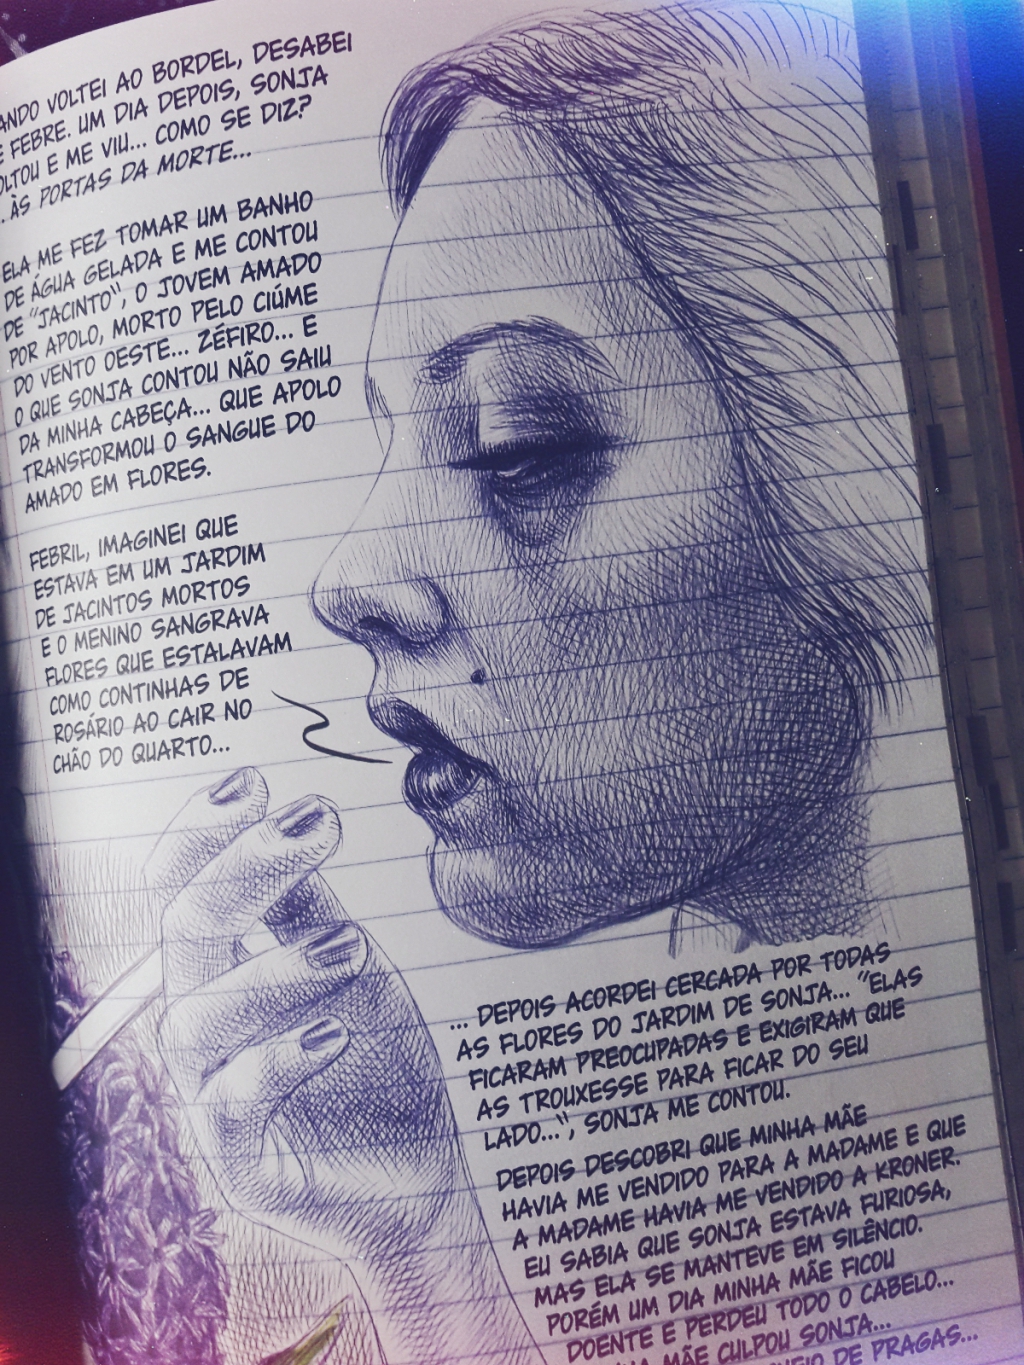 VOLTEI AO BORDEL, DESABEI
FEBRE. UM DIA DEPOIS, SONJA
E ME VIU... COMO SE DIZ?
... ÀS PORTAS DA MORTE...
ELA ME FEZ TOMAR UM BANHO
DE ÁGUA GELADA E ME CONTOU
DE "JACINTO", O JOVEM AMADO
POR APOLO, MORTO PELO CIÚME
DO VENTO OESTE... ZÉFIRO... E
O QUE SONJA CONTOU NÃO SAIU
DA MINHA CABEÇA... QUE APOLO
TRANSFORMOU O SANGUE DO
AMADO EM FLORES.
FEBRIL, IMAGINEI QUE
ESTAVA EM UM JARDIM
DE JACINTOS MORTOS
E O MENINO SANGRAVA
FLORES QUE ESTALAVAM
COMO CONTINHAS DE
ROSÁRIO AO CAIR NO
CHÃO DO QUARTO...
... DEPOIS ACORDEI CERCADA POR TODAS
AS FLORES DO JARDIM DE SONJA... "ELAS
FICARAM PREOCUPADAS E EXIGIRAM QUE
AS TROUXESSE PARA FICAR DO SEU
LADO...", SONJA ME CONTOU.
DEPOIS DESCOBRI QUE MINHA MÃE
HAVIA ME VENDIDO PARA A MADAME E QUE
A MADAME HAVIA ME VENDIDO A KRONER.
EU SABIA QUE SONJA ESTAVA FURIOSA,
MAS ELA SE MANTEVE EM SILÊNCIO.
PORÉM UM DIA MINHA MÃE FICOU
DOENTE E PERDEU TODO O CABELO...
MÃE CULPOU SONJA...
DE PRAGAS...